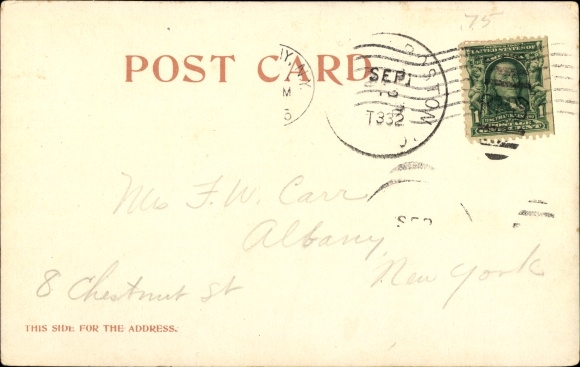 75
POST CARD
SEP 1
T332
UNITED STATES OF
AMERICA
1 1
POSTAGE
ONE CENT
Mrs F. W. Carr
Albany
New York
8 Chestnut St
THIS SIDE FOR THE ADDRESS.